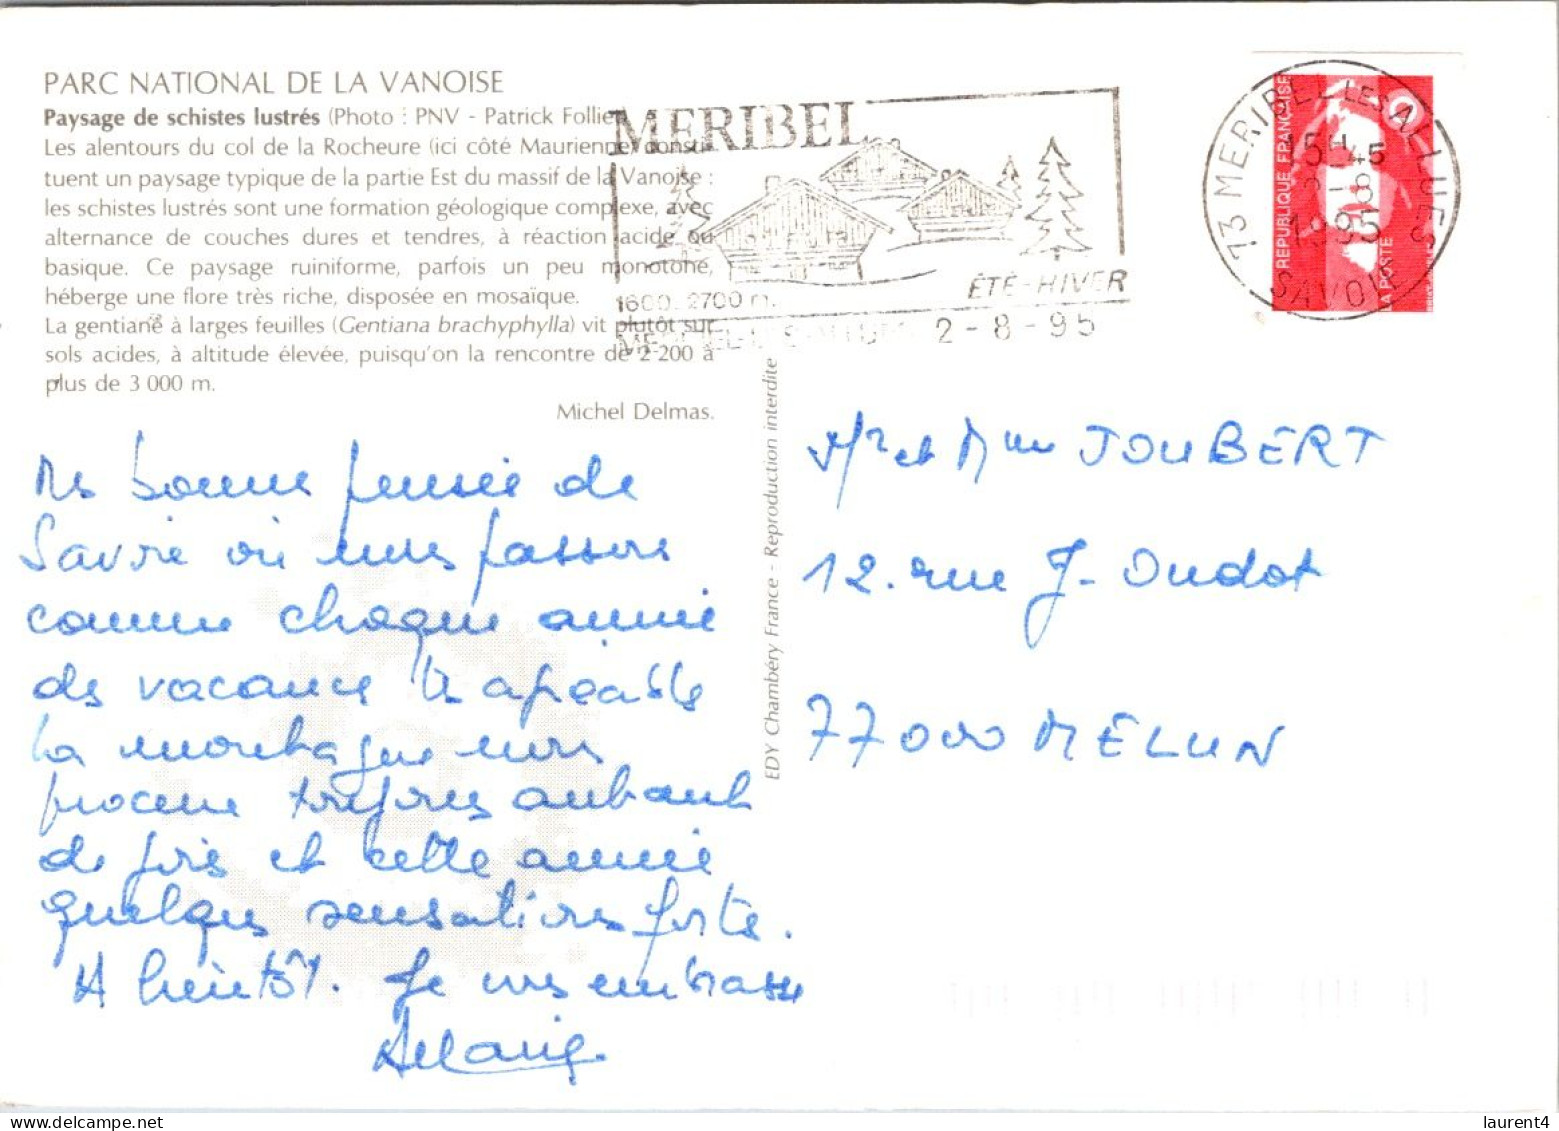 PARC NATIONAL DE LA VANOISE
Paysage de schistes lustrés (Photo : PNV - Patrick Follie
Les alentours du col de la Rocheure (ici côté Maurienne) consti-
tuent un paysage typique de la partie Est du massif de la Vanoise :
les schistes lustrés sont une formation géologique complexe, avec
alternance de couches dures et tendres, à réaction acide ou
basique. Ce paysage ruiniforme, parfois un peu monotone,
héberge une flore très riche, disposée en mosaïque.
La gentiane à larges feuilles (Gentiana brachyphylla) vit plutôt sur
sols acides, à altitude élevée, puisqu'on la rencontre de 2 200 à
plus de 3 000 m.
Michel Delmas.
MERIBEL
1600-2700 m.
ÉTÉ-HIVER
2-8-95
73 MERIBEL LES ALLUES
15H45
1995
SAVOIE
REPUBLIQUE FRANÇAISE
LA POSTE
EDY Chambéry France - Reproduction interdite
bonne pensée de
Savoie où nous passons
comme chaque année
des vacances très agréable
La montagne nous
procure toujours autant
de joie et cette année
quelques sensations forte.
A bientôt. Je vous embrasse
Mr et Mme JOUBERT
12. rue J- Oudot
77000 MELUN
laurent4